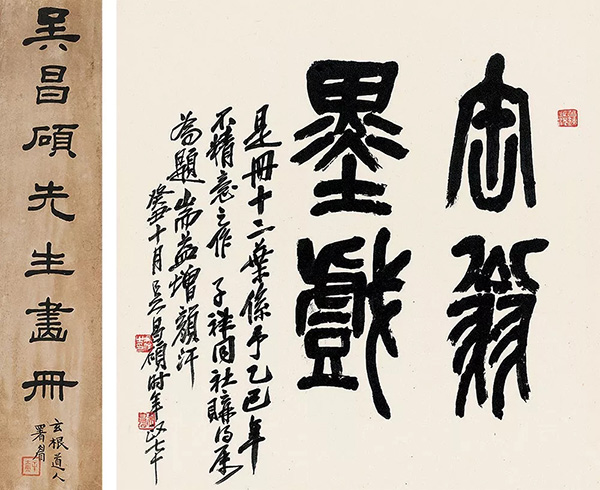 吳昌碩先生畫冊
玄根道人
署眉
缶翁
墨戲
是冊十二葉係予乙巳年
不精意之作 子同社購得屬
為題耑益增顏汗
癸丑十月吳昌碩時年政七十